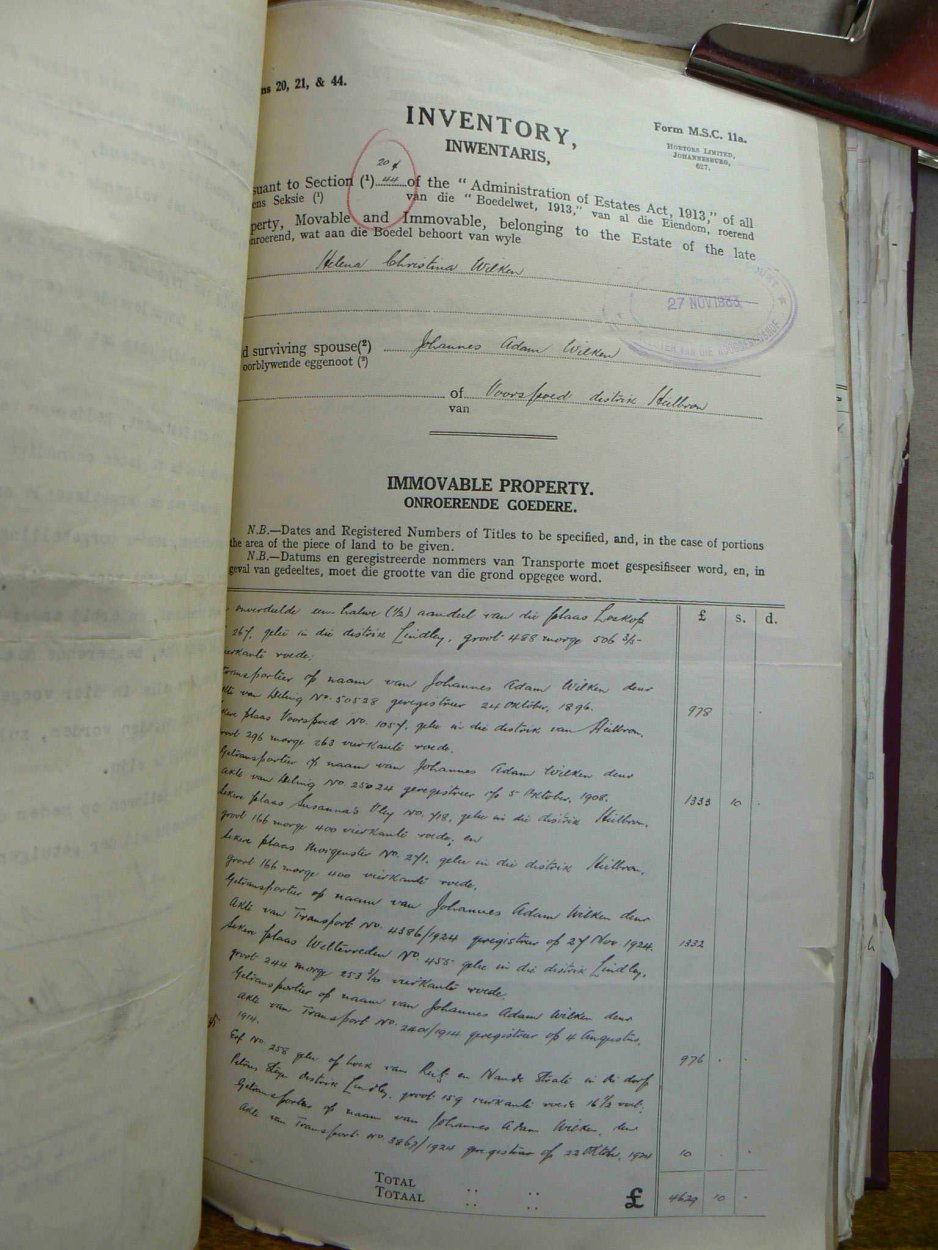 ns 20, 21, & 44.
Form M.S.C. 11a.
HORTORS LIMITED,
JOHANNESBURG,
627.
INVENTORY,
INWENTARIS,
20 &
suant to Section (¹) 44 of the “ Administration of Estates Act, 1913,” of all
ens Seksie (¹) van die “ Boedelwet, 1913,” van al die Eiendom, roerend
perty, Movable and Immovable, belonging to the Estate of the late
nroerend, wat aan die Boedel behoort van wyle
Helena Christina Wilken
27 NOV 1933
d surviving spouse(²) Johannes Adam Wilken
oorblywende eggenoot (²)
of Voorspoed distrik Heilbron
van
IMMOVABLE PROPERTY.
ONROERENDE GOEDERE.
N.B.—Dates and Registered Numbers of Titles to be specified, and, in the case of portions
the area of the piece of land to be given.
N.B.—Datums en geregistreerde nommers van Transporte moet gespesifiseer word, en, in
geval van gedeeltes, moet die grootte van die grond opgegee word.
£ s. d.
onverdeelde een halwe (½) aandeel van die plaas Leekop
267, gelee in die distrik Lindley, groot 488 morge 506 3/5
vierkante roede.
Getransporteer op naam van Johannes Adam Wilken deur
akte van Deling No. 50528 geregistreer 24 Oktober, 1896. 978
Sekere plaas Voorspoed No. 1057, gelee in die distrik van Heilbron,
groot 296 morge 263 vierkante roede.
Getransporteer op naam van Johannes Adam Wilken deur
Akte van Deling No. 25024 geregistreer op 5 Oktober, 1908. 1333 10
Sekere plaas Susanna's Vley No. 718, gelee in die distrik Heilbron,
groot 166 morge 400 vierkante roede, en
Sekere plaas Morgenster No. 271, gelee in die distrik Heilbron,
groot 166 morge 400 vierkante roede.
Getransporteer op naam van Johannes Adam Wilken deur
Akte van Transport No. 4386/1924 geregistreer op 27 Nov 1924. 1332
Sekere plaas Weltevreden No. 455 gelee in die distrik Lindley,
groot 244 morge 253 vierkante roede.
Getransporteer op naam van Johannes Adam Wilken deur
Akte van Transport No. 2401/1914 geregistreer op 4 Augustus,
1914. 976
Erf No. 258 gelee op hoek van en Straate in die dorp
Petrus Steyn distrik Lindley, groot 159 vierkante roede 16½ voet.
Getransporteer op naam van Johannes Adam Wilken, deur
Akte van Transport No. /1924 geregistreer op 22 Oktbr. 1924 10
TOTAL
TOTAAL £ 4629 10